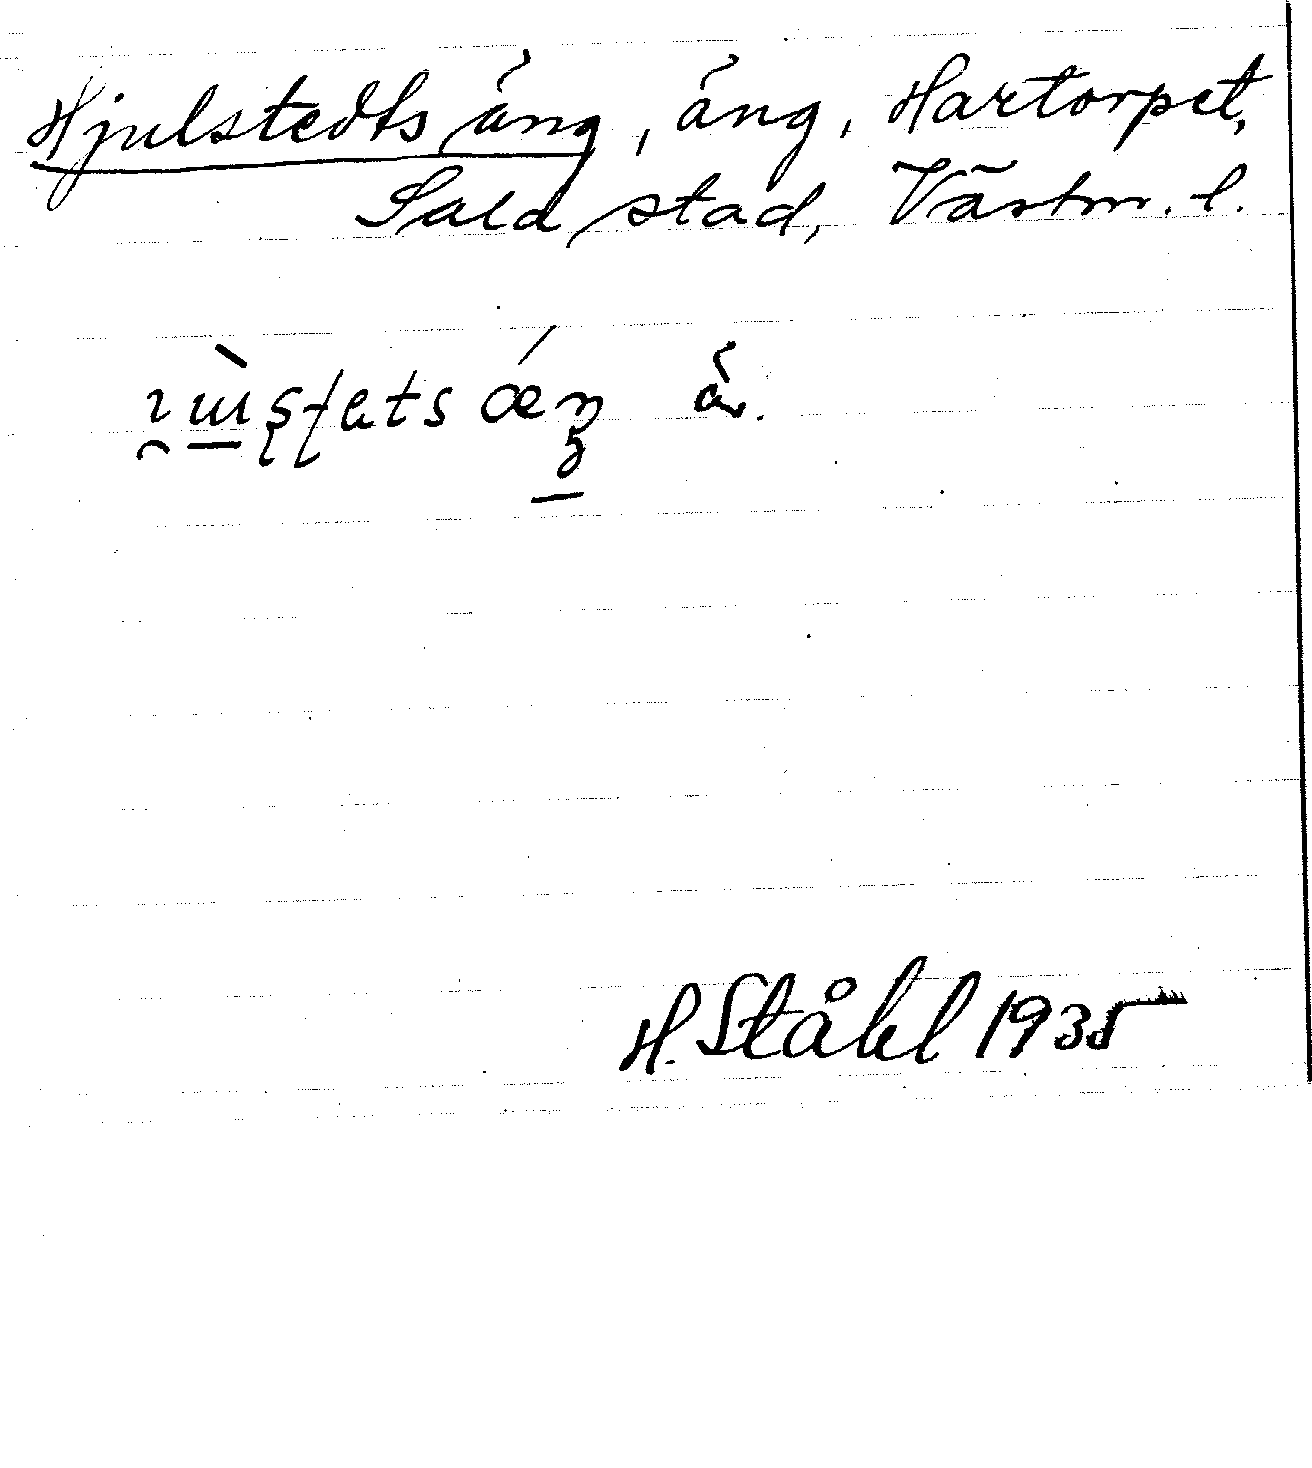 Hjulstedts äng, äng, Hartorpet,
Sala stad, Västm. l.
H. Ståhl 1935